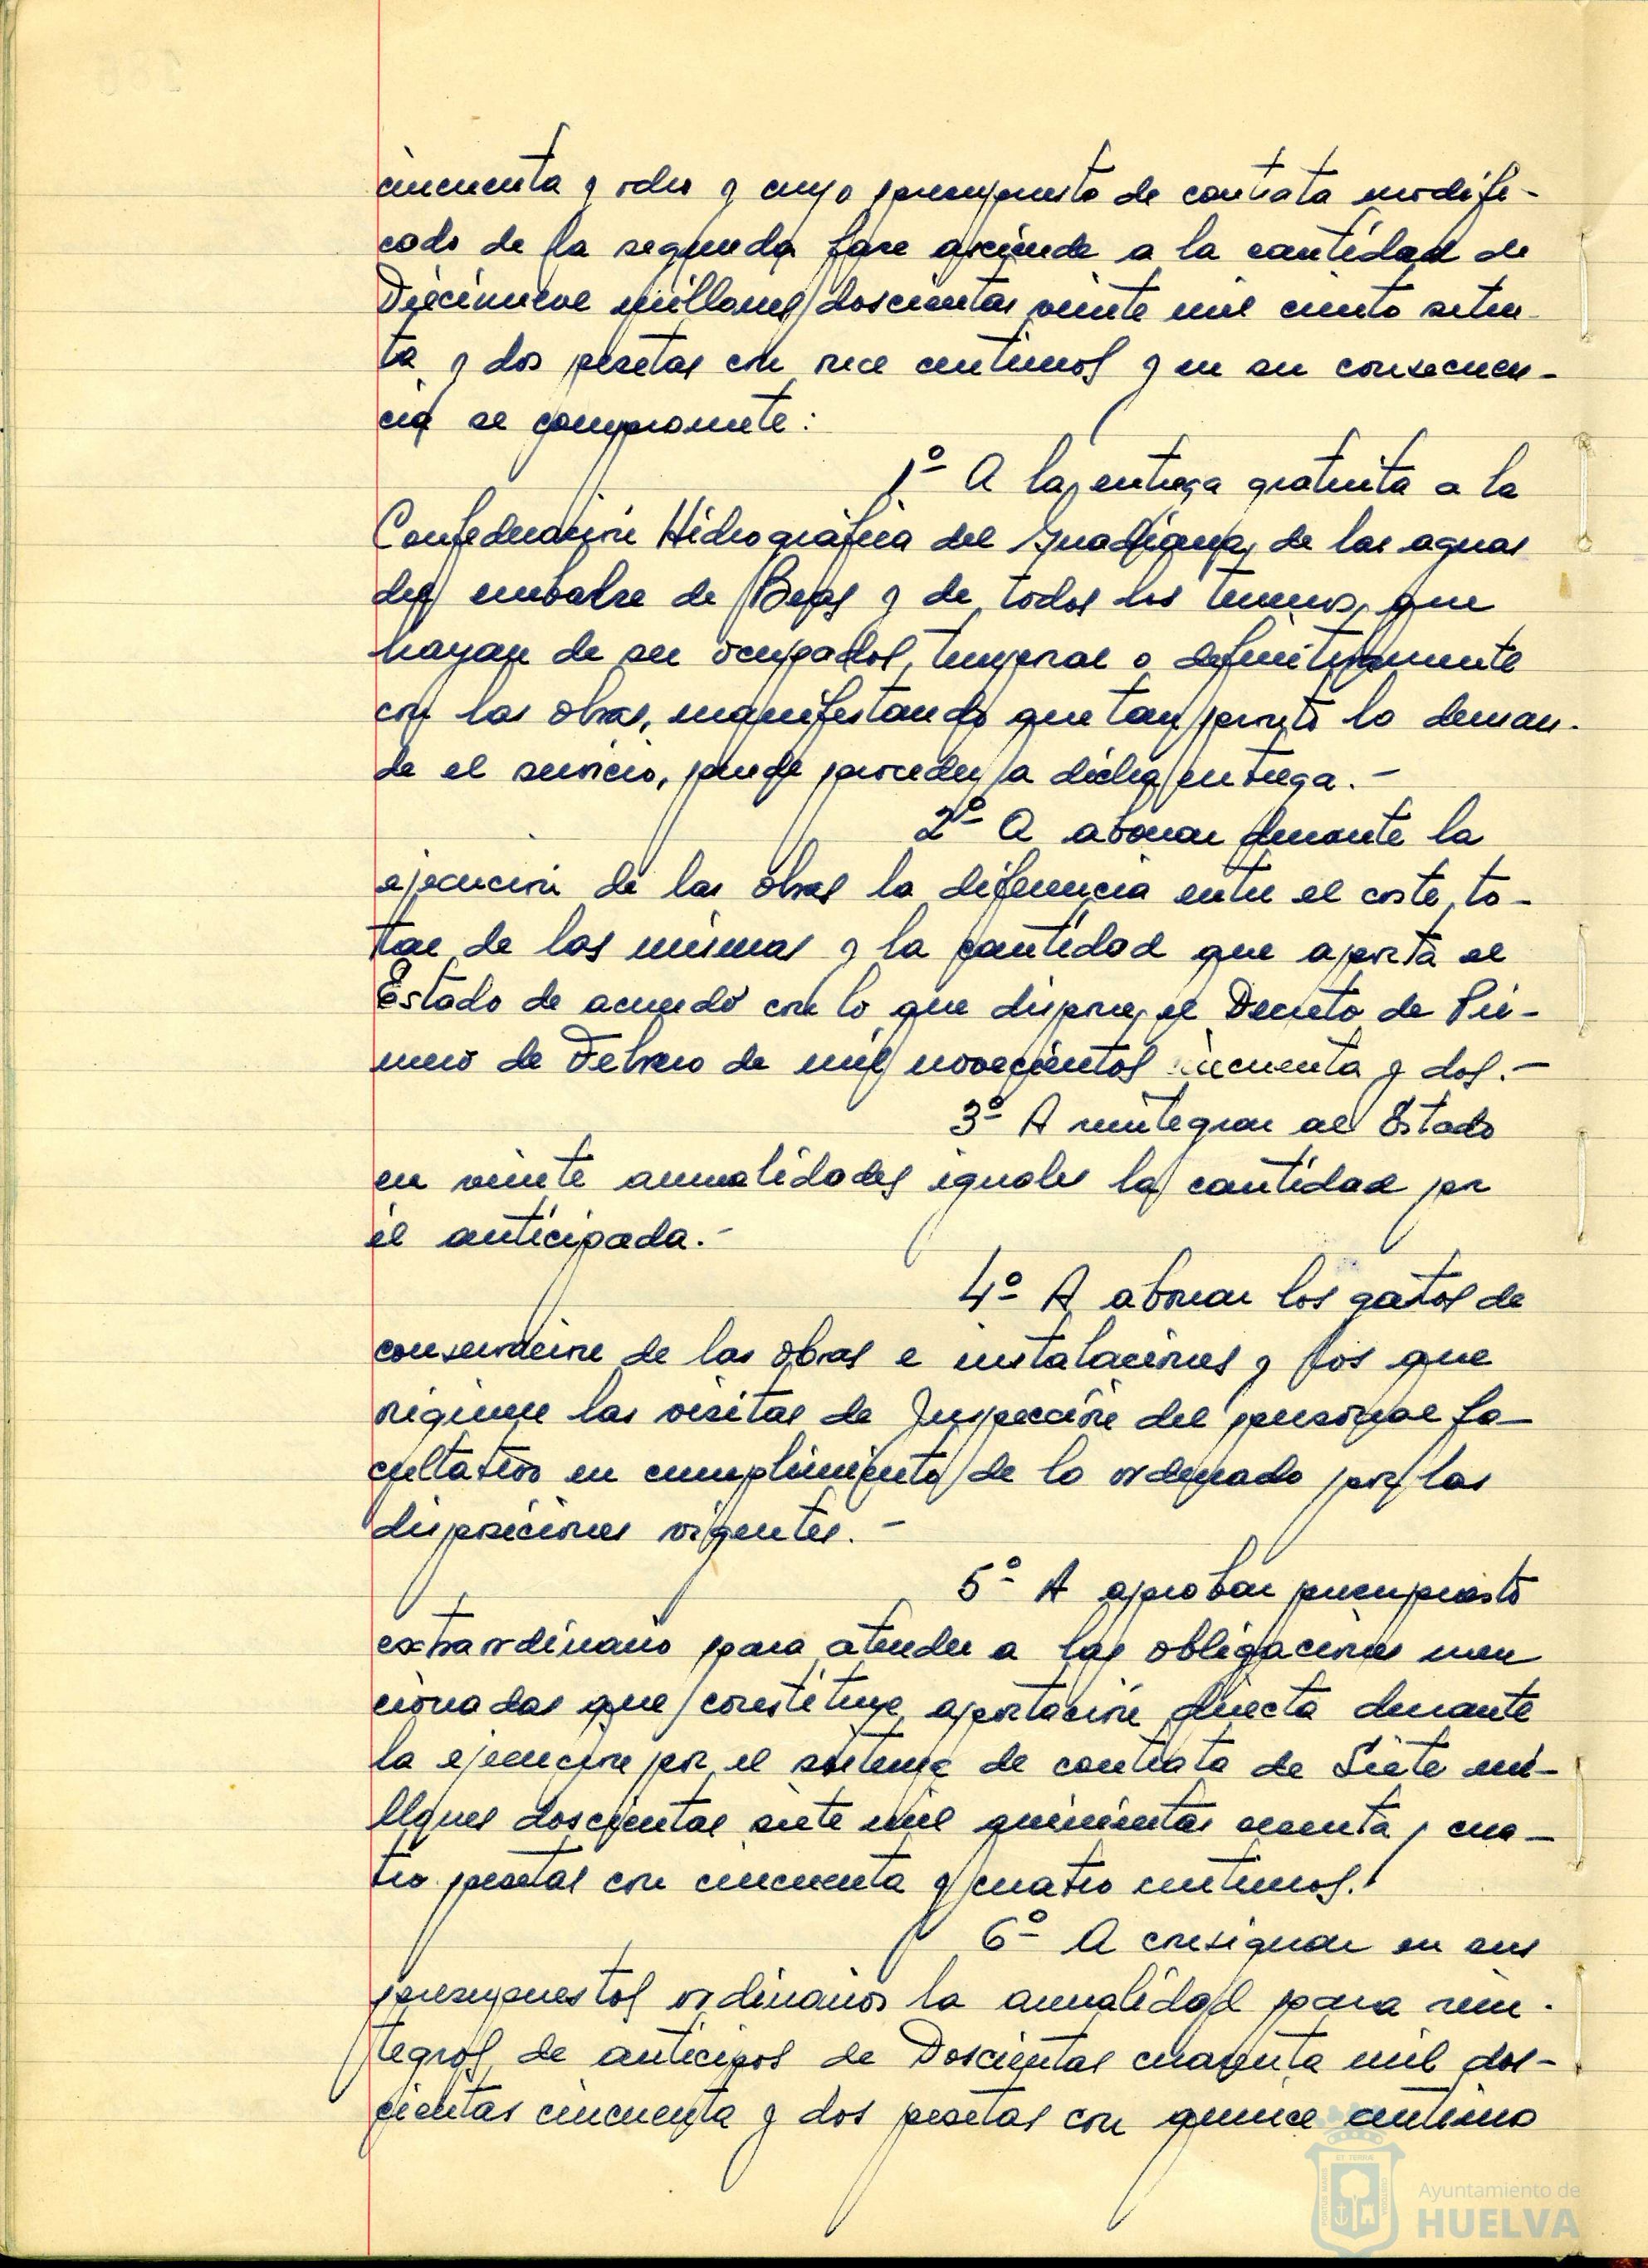 cincuenta y ocho y cuyo presupuesto de contrata modifi-
cado de la segunda fase asciende a la cantidad de
Diecinueve millones doscientas veinte mil ciento seten-
ta y dos pesetas con once centimos y en su consecuen-
cia se compromete:
1º A la entrega gratuita a la
Confederación Hidrográfica del Guadiana, de las aguas
del embalse de Beas y de todos los terrenos, que
hayan de ser ocupados, temporal o definitivamente
con las obras, manifestando que tan pronto lo deman-
de el servicio, puede proceder a dicha entrega.-
2º A abonar durante la
ejecución de las obras la diferencia entre el coste to-
tal de las mismas y la cantidad que aporta el
Estado de acuerdo con lo que dispone el Decreto de Pri-
mero de Febrero de mil novecientos cincuenta y dos.-
3º A reintegrar al Estado
en veinte anualidades iguales la cantidad por
él anticipada.-
4º A abonar los gastos de
conservación de las obras e instalaciones y los que
originen las visitas de Inspección del personal fa-
cultativo en cumplimiento de lo ordenado por las
disposiciones vigentes.-
5º A aprobar presupuesto
extraordinario para atender a las obligaciones men
cionadas que constituye aportación directa durante
la ejecución por el sistema de contrata de Siete mi-
llones doscientas siete mil quinientas sesenta y cua-
tro pesetas con cincuenta y cuatro centimos.
6º A consignar en sus
presupuestos ordinarios la anualidad para rein-
tegros de anticipos de Doscientas cuarenta mil dos-
cientas cincuenta y dos pesetas con quince centimo
Ayuntamiento de
HUELVA